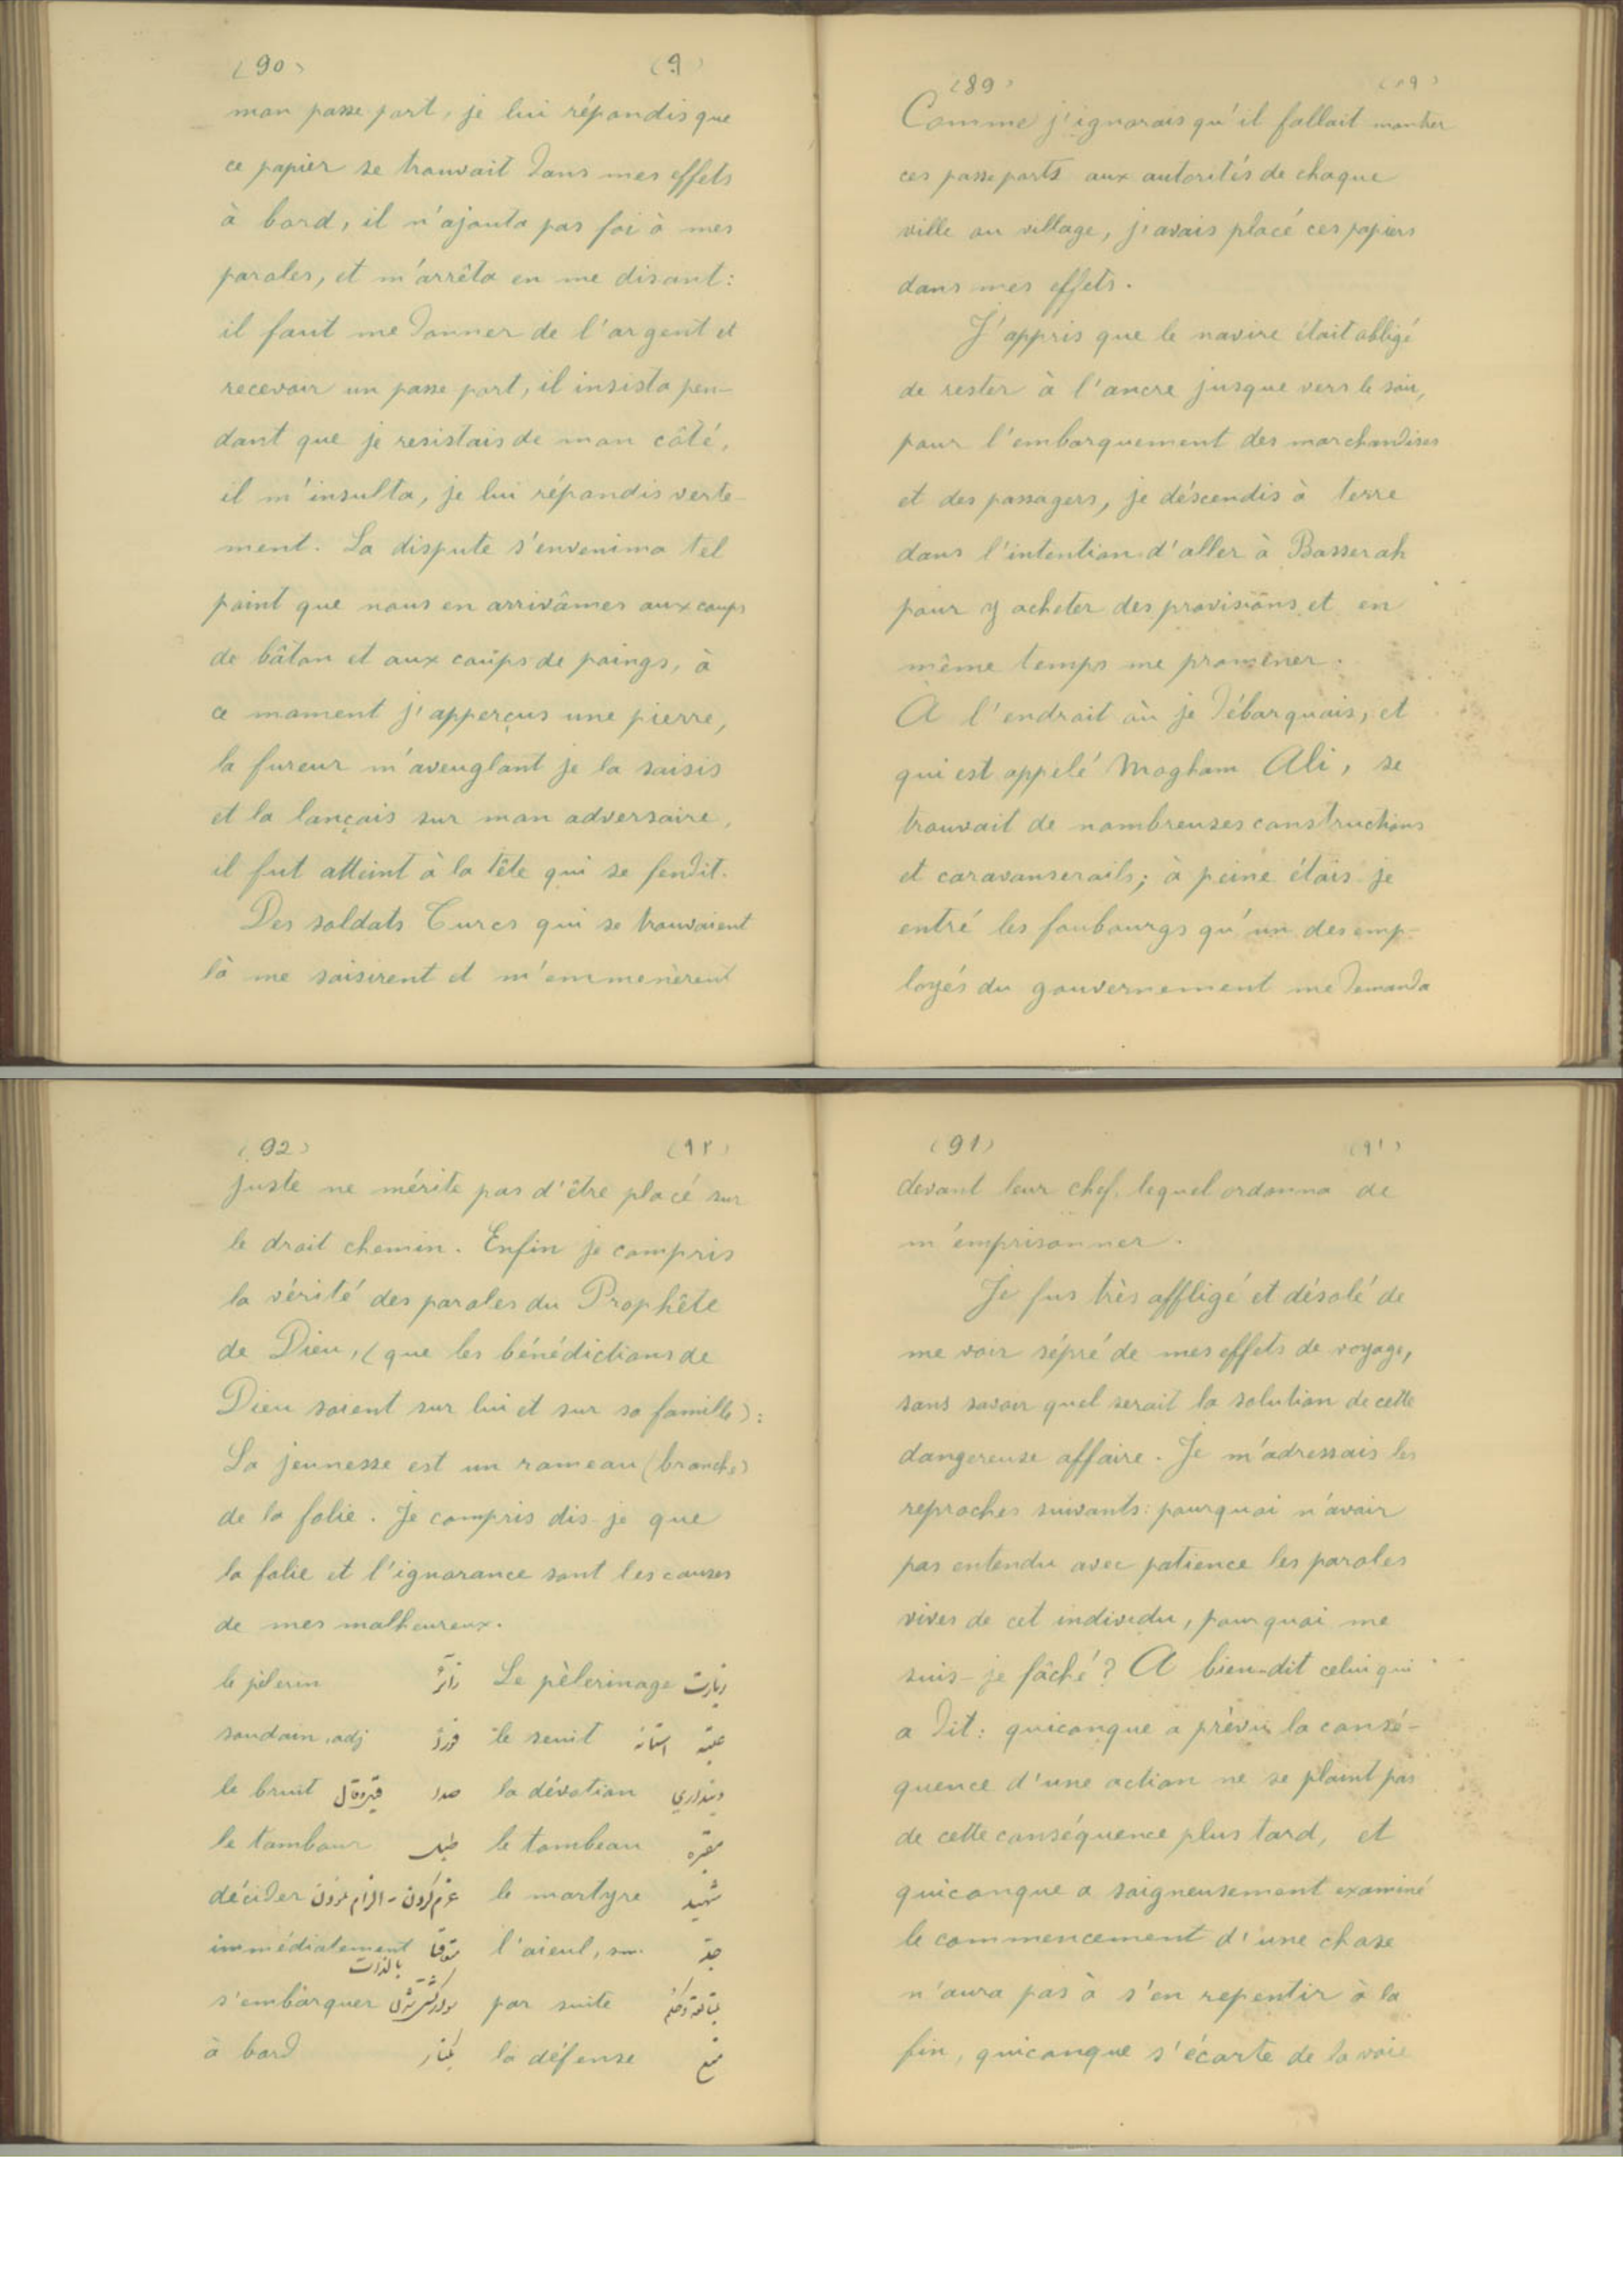 (89) (٨٩)
Comme j'ignorais qu'il fallait montrer
ces passeports aux autorités de chaque
ville ou village, j'avais placé ces papiers
dans mes effets.
J'appris que le navire était obligé
de rester à l'ancre jusque vers le soir,
pour l'embarquement des marchandises
et des passagers, je déscendis à terre
dans l'intention d'aller à Basserah
pour y acheter des provisions et en
même temps me promener.
A l'endroit où je débarquais, et
qui est appelé Magham Ali, se
trouvait de nombreuses constructions
et caravanserails; à peine étais-je
entré les faubourgs qu'un des emp-
loyés du gouvernement me demanda
(90) (٩٠)
mon passe port, je lui répondis que
ce papier se trouvait dans mes effets
à bord, il n'ajouta pas foi à mes
paroles, et m'arrêta en me disant:
il faut me donner de l'argent et
recevoir un passe port, il insista pen-
dant que je resistais de mon côté,
il m'insulta, je lui répondis verte-
ment. La dispute s'envenima tel
point que nous en arrivâmes aux coups
de bâton et aux coups de poings, à
ce moment j'apperçus une pierre,
la fureur m'aveuglant je la saisis
et la lançais sur mon adversaire,
il fut atteint à la tête qui se fendit.
Des soldats Turcs qui se trouvaient
là me saisirent et m'emmenèrent
(91) (٩١)
devant leur chef, lequel ordonna de
m'emprisonner.
Je fus très affligé et désolé de
me voir sépré de mes effets de voyage,
sans savoir quel serait la solution de cette
dangereuse affaire. Je m'adressais les
reproches suivants: pourquoi n'avoir
pas entendu avec patience les paroles
vives de cet individu, pourquoi me
suis-je fâché? A bien-dit celui qui
a dit: quiconque a prévu la consé-
quence d'une action ne se plaint pas
de cette conséquence plus tard, et
quiconque a soigneusement examiné
le commencement d'une chose
n'aura pas à s'en repentir à la
fin, quiconque s'écarte de la voie
(92) (٩٢)
juste ne mérite pas d'être placé sur
le droit chemin. Enfin je compris
la vérité des paroles du Prophête
de Dieu, (que les bénédictions de
Dieu soient sur lui et sur sa famille):
La jeunesse est un rameau (branche)
de la folie. Je compris dis-je que
la folie et l'ignorance sont les causes
de mes malheureux.
le pèlerin زائر Le pèlerinage زيارت
soudain, adj le seuil عتبه استانه
le bruit صدا la dévotion دينداري
le tambour طبل le tombeau مقبره
décider عزم كردن - الزام نمودن le martyre شهيد
immédiatement بالذات l'aieul, sm. جد
s'embarquer par suite
à bord كنار la défense منع